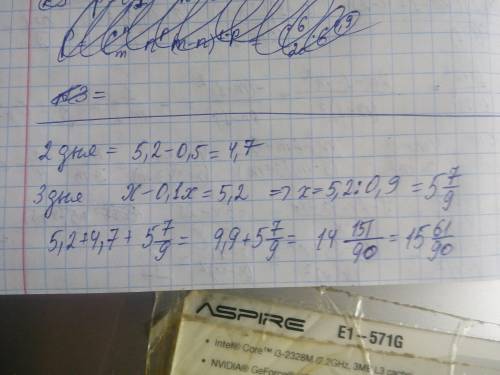 №3 =
2 дня = 5,2-0,5=4,7
3 дня x-0,1x=5,2 => x=5,2:0,9 = 5 7/9
5,2+4,7+ 5 7/9 = 9,9+5 7/9 = 14 151/90 = 15 61/90
ASPIRE E1-571G
• Intel® Core™ i3-2328M (2.2GHz, 3MB L3 cache
• NVIDIA® GeForce®